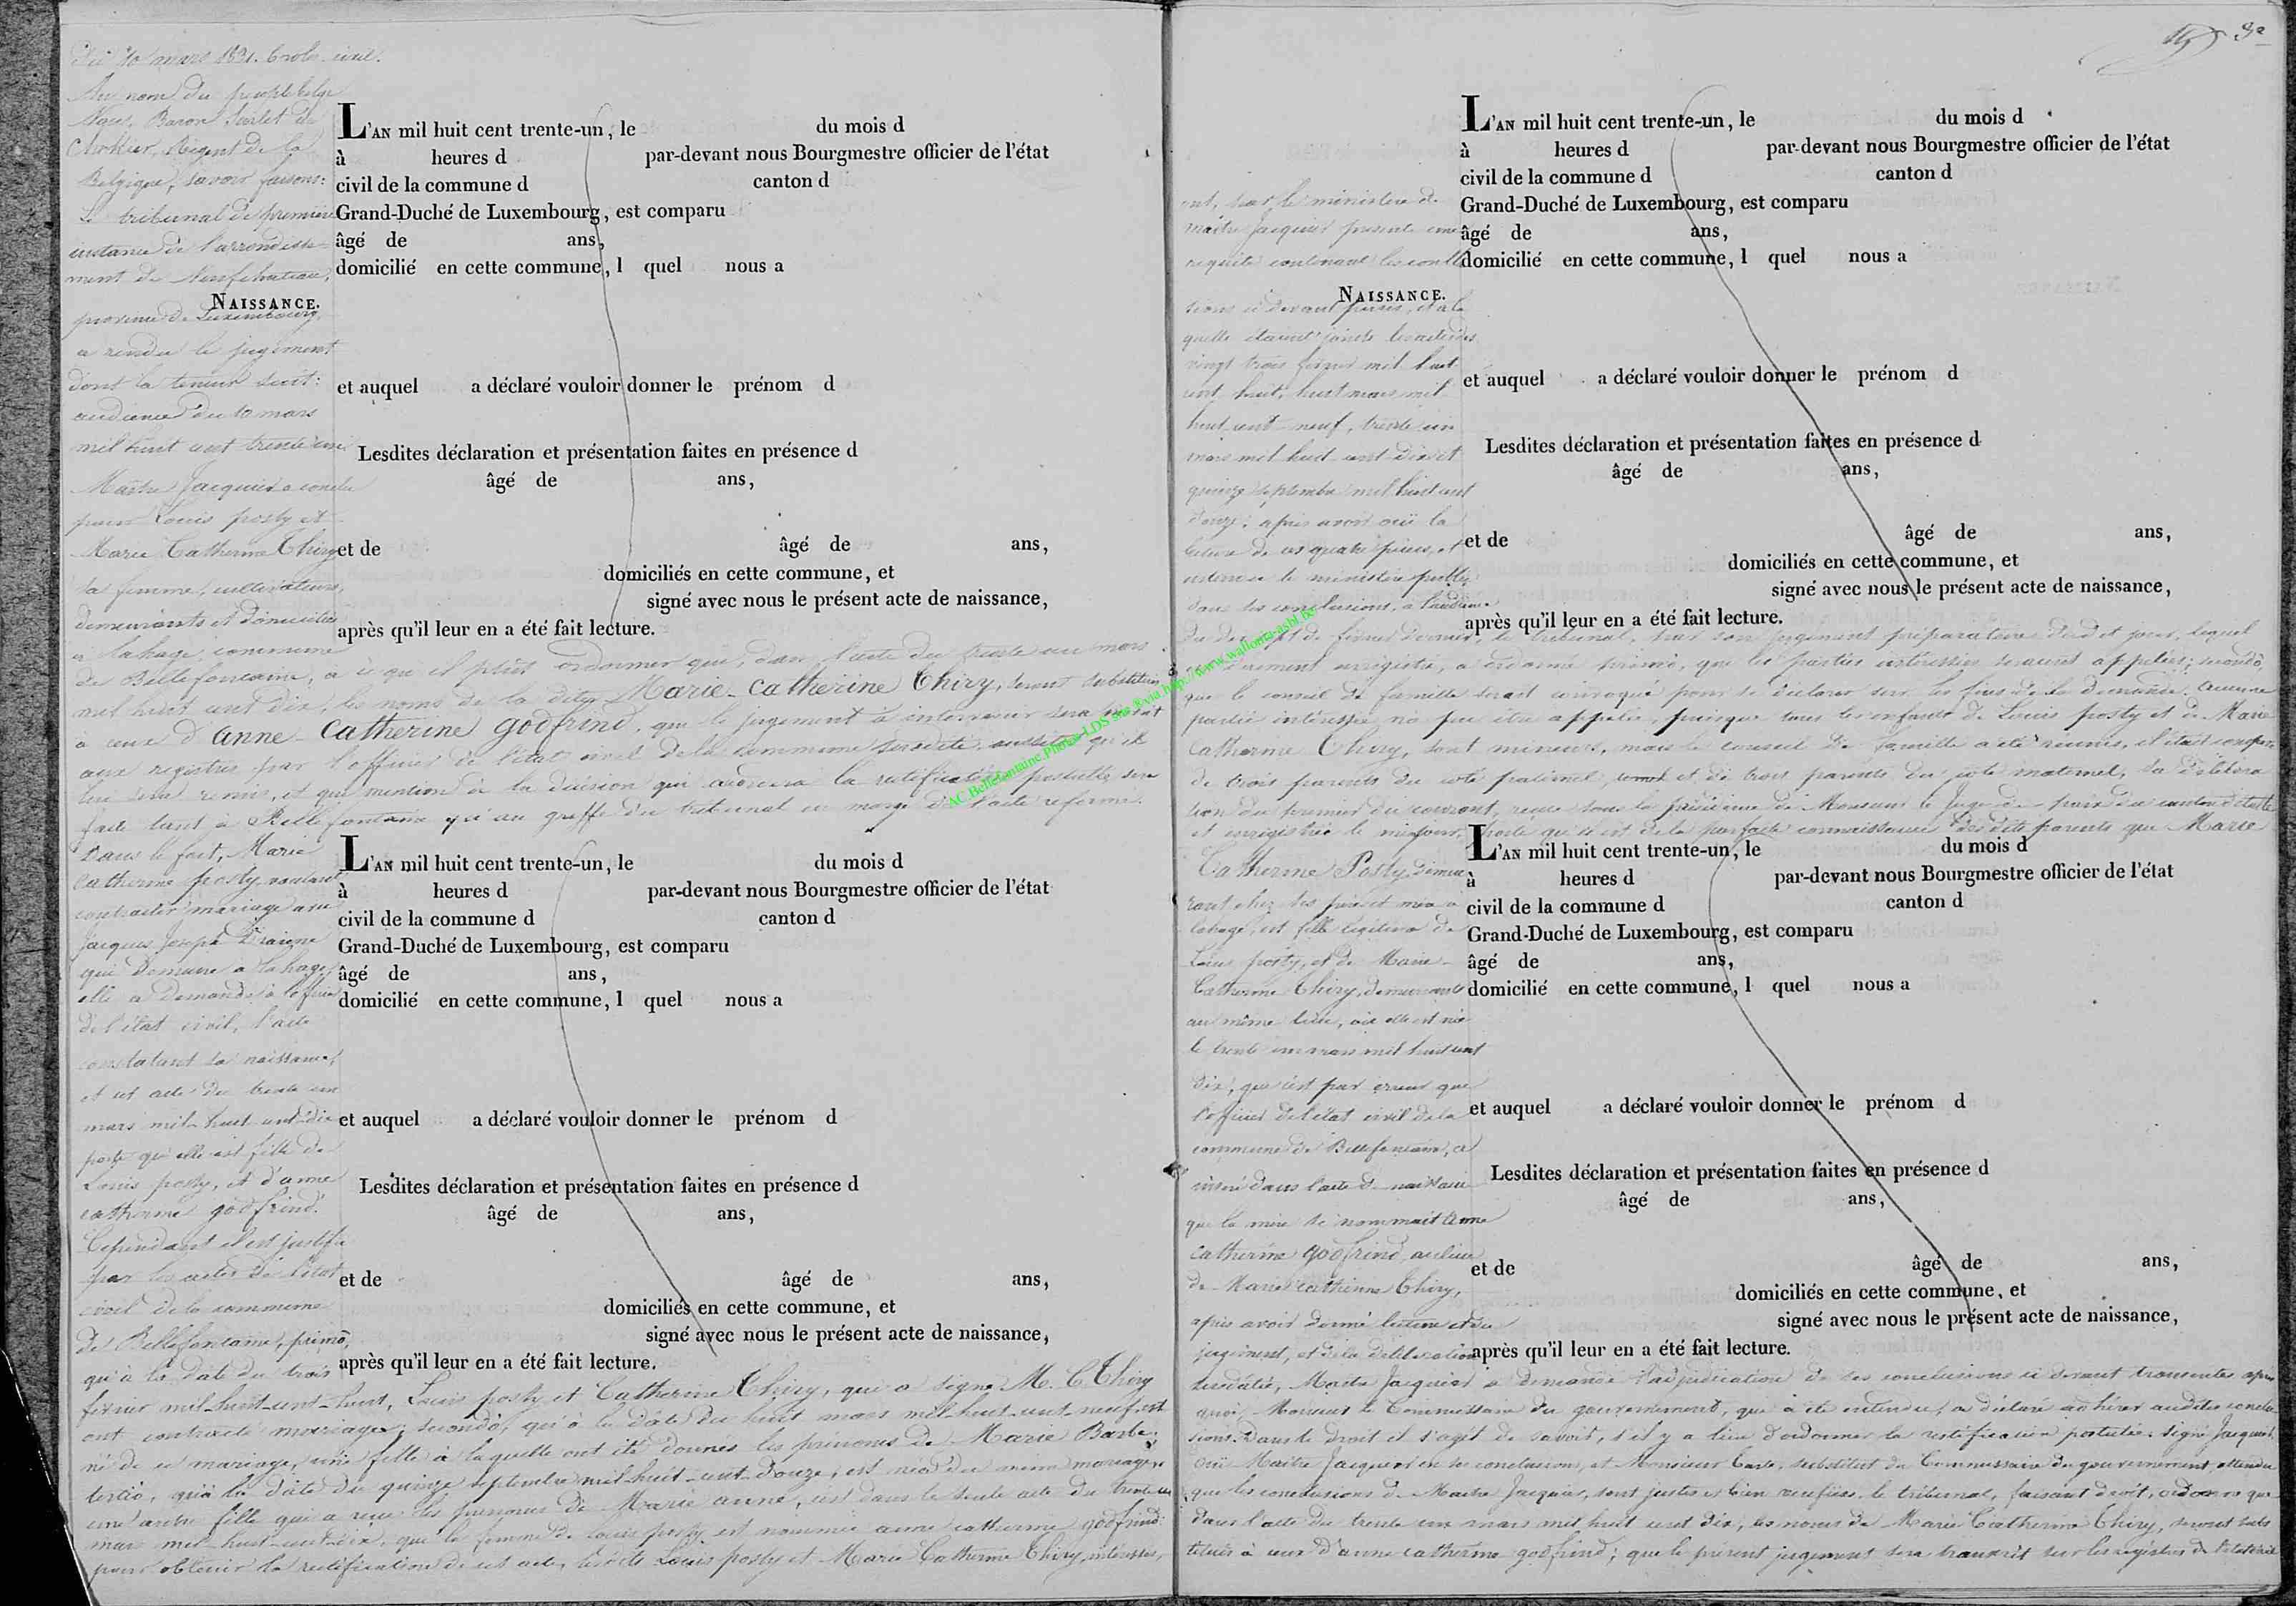 Du 10 mars 1831. Trib. civil.
Au nom du peuple belge
Nous, Baron Surlet de
Chokier, Régent de la
Belgique, savoir faisons:
Le tribunal de première
instance de l'arrondisse-
ment de Neufchateau,
province de Luxembourg,
a rendu le jugement
dont la teneur suit:
audience du 10 mars
mil huit cent trente un
Maître Jacquier a conclu
pour Louis posty et
Marie Catherine Thiry
sa femme, cultivateurs,
demeurants et domiciliés
à lahage, commune
de Bellefontaine, à ce qu'il plût ordonner que, dans l'acte du trente un mars
mil huit cent dix, les noms de la dite Marie-Catherine Thiry, seront substitués
à ceux d'anne-Catherine godfrind, que le jugement à intervenir sera inscrit
aux registres par l'officier de l'état civil de la commune susdite aussitôt qu'il
lui sera remis, et que mention de la décision qui ordonnera la rectification postulée sera
faite tant à Bellefontaine qu'au greffe du tribunal en marge de l'acte reformé.
L'AN mil huit cent trente-un, le du mois d
à heures d par-devant nous Bourgmestre officier de l'état
civil de la commune d canton d
Grand-Duché de Luxembourg, est comparu
âgé de ans,
domicilié en cette commune, l quel nous a
NAISSANCE.
et auquel a déclaré vouloir donner le prénom d
Lesdites déclaration et présentation faites en présence d
âgé de ans,
et de âgé de ans,
domiciliés en cette commune, et
signé avec nous le présent acte de naissance,
après qu'il leur en a été fait lecture.
Dans le fait, Marie
Catherine posty voulant
contracter mariage avec
jacques joseph
qui demeure à lahage,
elle a demandé à l'officier
de l'état civil, l'acte
constatant sa naissance,
et cet acte du trente un
mars mil-huit-cent-dix
porte qu'elle est fille de
Louis posty, et d'anne
catherine godfrind.
Cependant il est justifié
par les actes de l'état
civil de la commune
de Bellefontaine, primo,
qu'à la date du trois
février mil-huit-cent-huit, Louis posty et Catherine Thiry, qui a signé M. C. Thiry
ont contracté mariage; secundò, qu'à la date du huit mars mil-huit-cent-neuf est
né de ce mariage, une fille à laquelle ont été donnés les prénoms de Marie Barbe;
tertiò, qu'à la date du quinze septembre mil-huit-cent-douze, est née du même mariage,
une autre fille qui a reçu les prénoms de Marie anne, c'est dans le seule acte du trente un
mars mil-huit-cent-dix, que la femme de Louis posty est nommée anne catherine godfrind:
pour obtenir la rectification de cet acte, lesdits Louis posty et Marie Catherine Thiry intéressés,
L'AN mil huit cent trente-un, le du mois d
à heures d par-devant nous Bourgmestre officier de l'état
civil de la commune d canton d
Grand-Duché de Luxembourg, est comparu
âgé de ans,
domicilié en cette commune, l quel nous a
et auquel a déclaré vouloir donner le prénom d
Lesdites déclaration et présentation faites en présence d
âgé de ans,
et de âgé de ans,
domiciliés en cette commune, et
signé avec nous le présent acte de naissance,
après qu'il leur en a été fait lecture.
AC Bellefontaine Photos LDS via http://www.wallonia-asbl.be/
ont, par le ministère de
maître Jacquier présenté une
requête contenant les conclu
sions ci devant prises, et à la
quelle étaient joints les actes des
vingt trois février mil huit
cent huit, huit mars mil
huit cent neuf, trente un
mars mil huit cent dix et
quinze septembre mil huit cent
douze; après avoir ouï la
lecture de ces quatre pièces, et
entendu le ministère public
dans ses conclusions, à l'audience
du de février dernier, le tribunal, par son jugement préparatoire dudit jour, lequel
enregistré, a ordonné primò, que les parties intéressées seraient appelées; secundò,
que le conseil de famille serait convoqué pour se déclarer sur les fins de la demande. Aucune
partie intéressée n'a pu être appelée, puisque tous les enfants de Louis posty et de Marie
Catherine Thiry, sont mineurs, mais le conseil de famille a été réunis, il était composé
de trois parents du coté paternel, et de trois parents du coté maternel, sa délibéra
tion du premier du courant, reçue sous la présidence de Monsieur le Juge de paix du canton d'Etalle
et enregistrée le même jour, porte qu'il est de la parfaite connaissance des dits parents que Marie
L'AN mil huit cent trente-un, le du mois d
à heures d par-devant nous Bourgmestre officier de l'état
civil de la commune d canton d
Grand-Duché de Luxembourg, est comparu
âgé de ans,
domicilié en cette commune, l quel nous a
NAISSANCE.
et auquel a déclaré vouloir donner le prénom d
Lesdites déclaration et présentation faites en présence d
âgé de ans,
et de âgé de ans,
domiciliés en cette commune, et
signé avec nous le présent acte de naissance,
après qu'il leur en a été fait lecture.
Catherine Posty, demeu
rant chez ses père et mère à
lahage, est fille légitime de
Louis posty, et de Marie-
Catherine Thiry, demeurants
au même lieu, où elle est née
le trente un mars mil huit cent
dix, que c'est par erreur que
l'officier de l'état civil de la
commune de Bellefontaine, a
inséré dans l'acte de naissance
que la mère se nommait Anne
catherine godfrind, au lieu
de Marie catherine Thiry,
après avoir donné lecture et du
jugement, et de la délibération
susdatée, Maître Jacquier a demandé l'adjudication de ses conclusions ci devant transcrites, après
quoi, Monsieur le Commissaire du gouvernement, qui a été entendu, a déclaré adhérer auxdites conclu
sions. Dans le droit il s'agit de savoir, s'il y a lieu d'ordonner la rectification postulée. signé Jacquier.
Ouï Maître Jacquier en ses conclusions, et Monsieur substitut du Commissaire du gouvernement, attendu
que les conclusions de Maître Jacquier, sont justes et bien verifiées, le tribunal, faisant droit, ordonne que
dans l'acte du trente un mars mil huit cent dix, les noms de Marie Catherine Thiry, seront subs
titués à ceux d'anne catherine godfrind; que le présent jugement sera transcrit sur les registres de l'état civil
L'AN mil huit cent trente-un, le du mois d
à heures d par-devant nous Bourgmestre officier de l'état
civil de la commune d canton d
Grand-Duché de Luxembourg, est comparu
âgé de ans,
domicilié en cette commune, l quel nous a
et auquel a déclaré vouloir donner le prénom d
Lesdites déclaration et présentation faites en présence d
âgé de ans,
et de âgé de ans,
domiciliés en cette commune, et
signé avec nous le présent acte de naissance,
après qu'il leur en a été fait lecture.